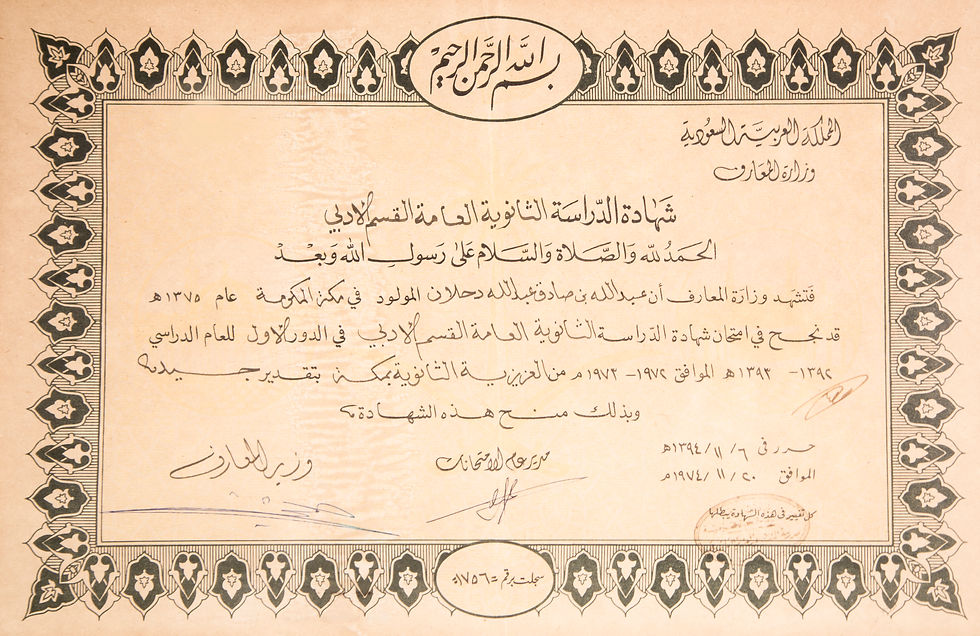 بسم الله الرحمن الرحيم
المملكة العربية السعودية
وزارة المعارف
شهادة الدراسة الثانوية العامة القسم الادبي
الحمد لله والصلاة والسلام على رسول الله وبعد
فتشهد وزارة المعارف أن عبدالله بن صادق عبدالله دحلان المولود في مكة المكرمة عام ١٣٧٥هـ
قد نجح في امتحان شهادة الدراسة الثانوية العامة القسم الادبي في الدور الاول للعام الدراسي
١٣٩٢- ١٣٩٣هـ الموافق ١٩٧٢- ١٩٧٣م من العزيزية الثانوية بمكة بتقدير جيد
وبذلك منح هذه الشهادة
حرر في ٦/ ١١/ ١٣٩٤هـ
الموافق ٢٠/ ١١/ ١٩٧٤م
مدير عام الامتحانات
وزير المعارف
كل تغيير في هذه الشهادة يبطلها
سجلت برقم ١٧٥٦٠